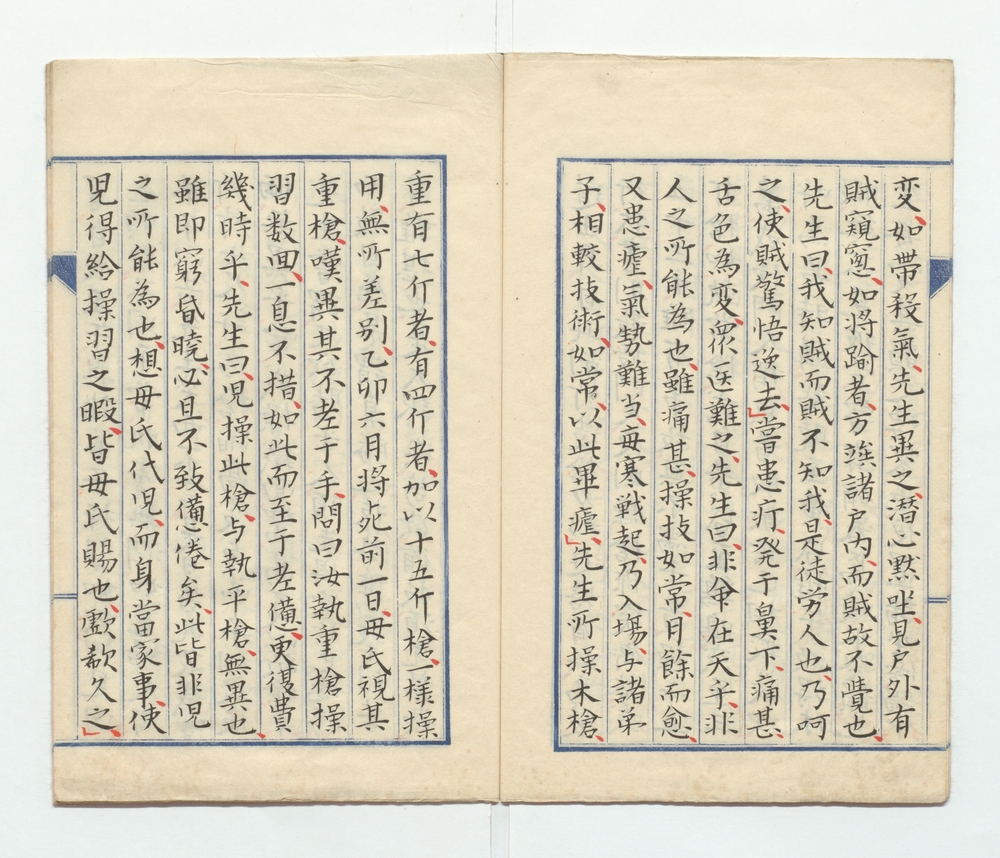 変、如帯殺氣、先生異之、潜心黙坐、見戸外有
賊窺窓、如将踰者、方竢諸戸内、而賊故不覺也、
先生曰、我知賊而賊不知我、是徒労人也、乃呵
之、使賊驚悟逆去」嘗患疔、発于鼻下、痛甚、
舌色為変、衆医難之、先生曰、非命在天乎、非
人之所能為也、雖痛甚、操技如常、月餘而愈、
又患瘧、氣勢難当、毎寒戦起、乃入塲、与諸弟
子、相較技術、如常、以此畢瘧」先生所操木槍、
重有七斤者、有四斤者、加以十五斤槍、一様操
用、無所差別、乙卯六月将死前一日、毋氏視其
重槍、嘆異其不老于手、問曰汝執重槍操
習数回、一息不措、如此而至于老憊、更復費
幾時乎、先生曰、児操此槍、与執平槍、無異也、
雖即窮昏曉、必且不致憊倦矣、此皆非児
之所能為也、想毋氏代児、而身當家事、使
児得給操習之暇、皆毋氏賜也、歔欷久之、」